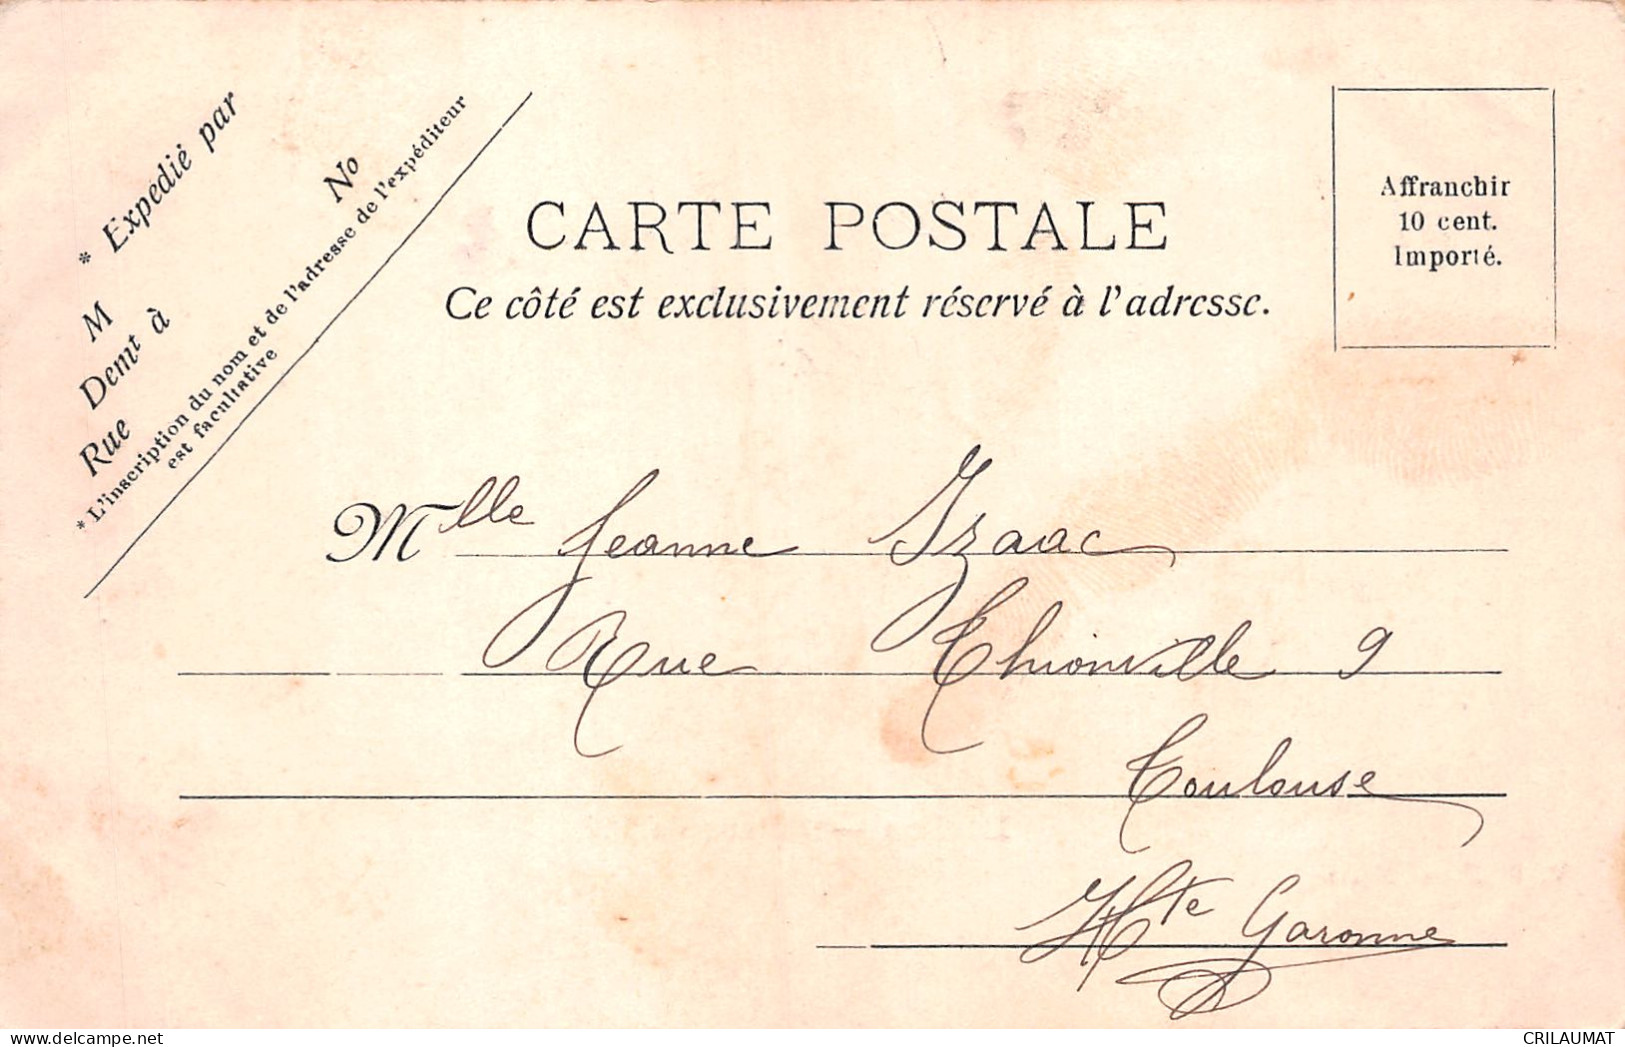 * Expédié par
M
Demt à
Rue No
* L'inscription du nom et de l'adresse de l'expéditeur
est facultative
CARTE POSTALE
Ce côté est exclusivement réservé à l'adresse.
Affranchir
10 cent.
Importé.
Mlle Jeanne Izaac
Rue Thionville 9
Toulouse
Hte Garonne
CRILAUMAT